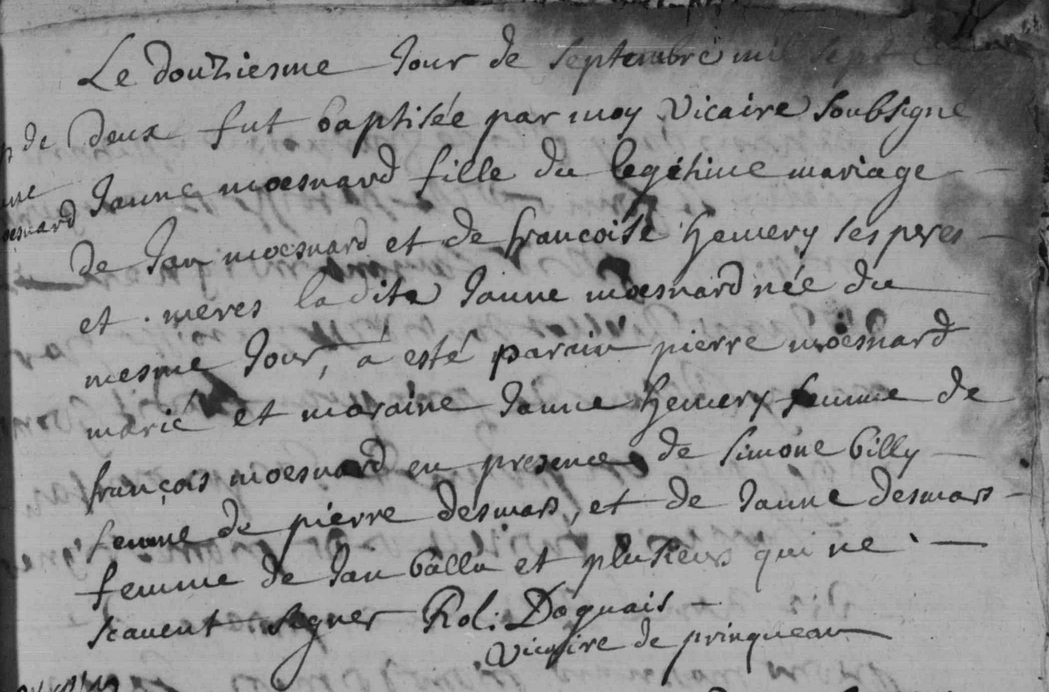 Le douziesme Jour de septembre mil sept cent
deux fut baptisée par moy Vicaire soubsigne
Janne moesnard fille du legitime mariage
de Jan moesnard et de francoise hemery ses peres
et meres ladite Janne moesnard née du
mesme Jour, a esté parain pierre moesnard
marié et maraine Janne hemery femme de
françois moesnard en presence de simone billy
femme de pierre desmars, et de Janne desmars
femme de Jan ballu et plusieurs qui ne
scavent signer Rol. Doguais
Vicaire de prinqueau